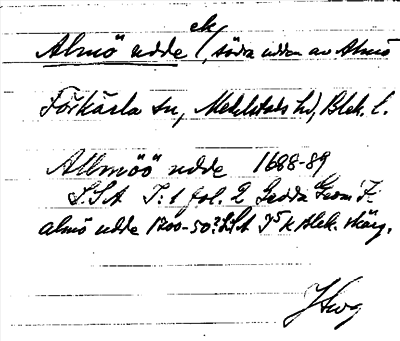 ek
Almö udde /, södra udden av Almö
Förkärla sn, Medelstads hd, Blek. l.
Allmöö udde 1688-89
S.S.A I:1 fol. 2 Gedda Geom. F:
almö udde 1700-50? SSA 35 k Blek. skärg.